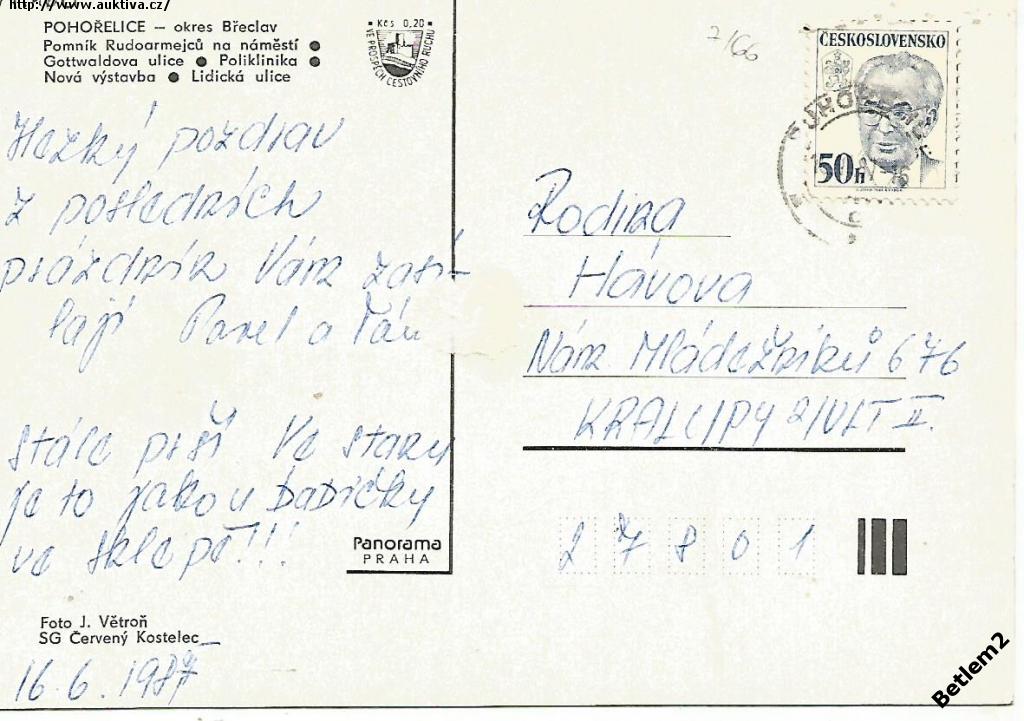 http://www.auktiva.cz/
POHOŘELICE – okres Břeclav
Pomník Rudoarmejců na náměstí ●
Gottwaldova ulice ● Poliklinika ●
Nová výstavba ● Lidická ulice
Kčs 0,20
VE PROSPĚCH CESTOVNÍHO RUCHU
7/66
ČESKOSLOVENSKO
50h
Hezký pozdrav
z posledních
prázdnin Vám zasí-
lají Pavel a
Stále prší Ve stanu
je to jako u babičky
ve sklepě!!!
Panorama
PRAHA
Foto J. Větroň
SG Červený Kostelec
16.6.1987
Rodina
Hávova
Nám Mládežníků 676
KRALUPY n/VLT II.
27801
Betlem2